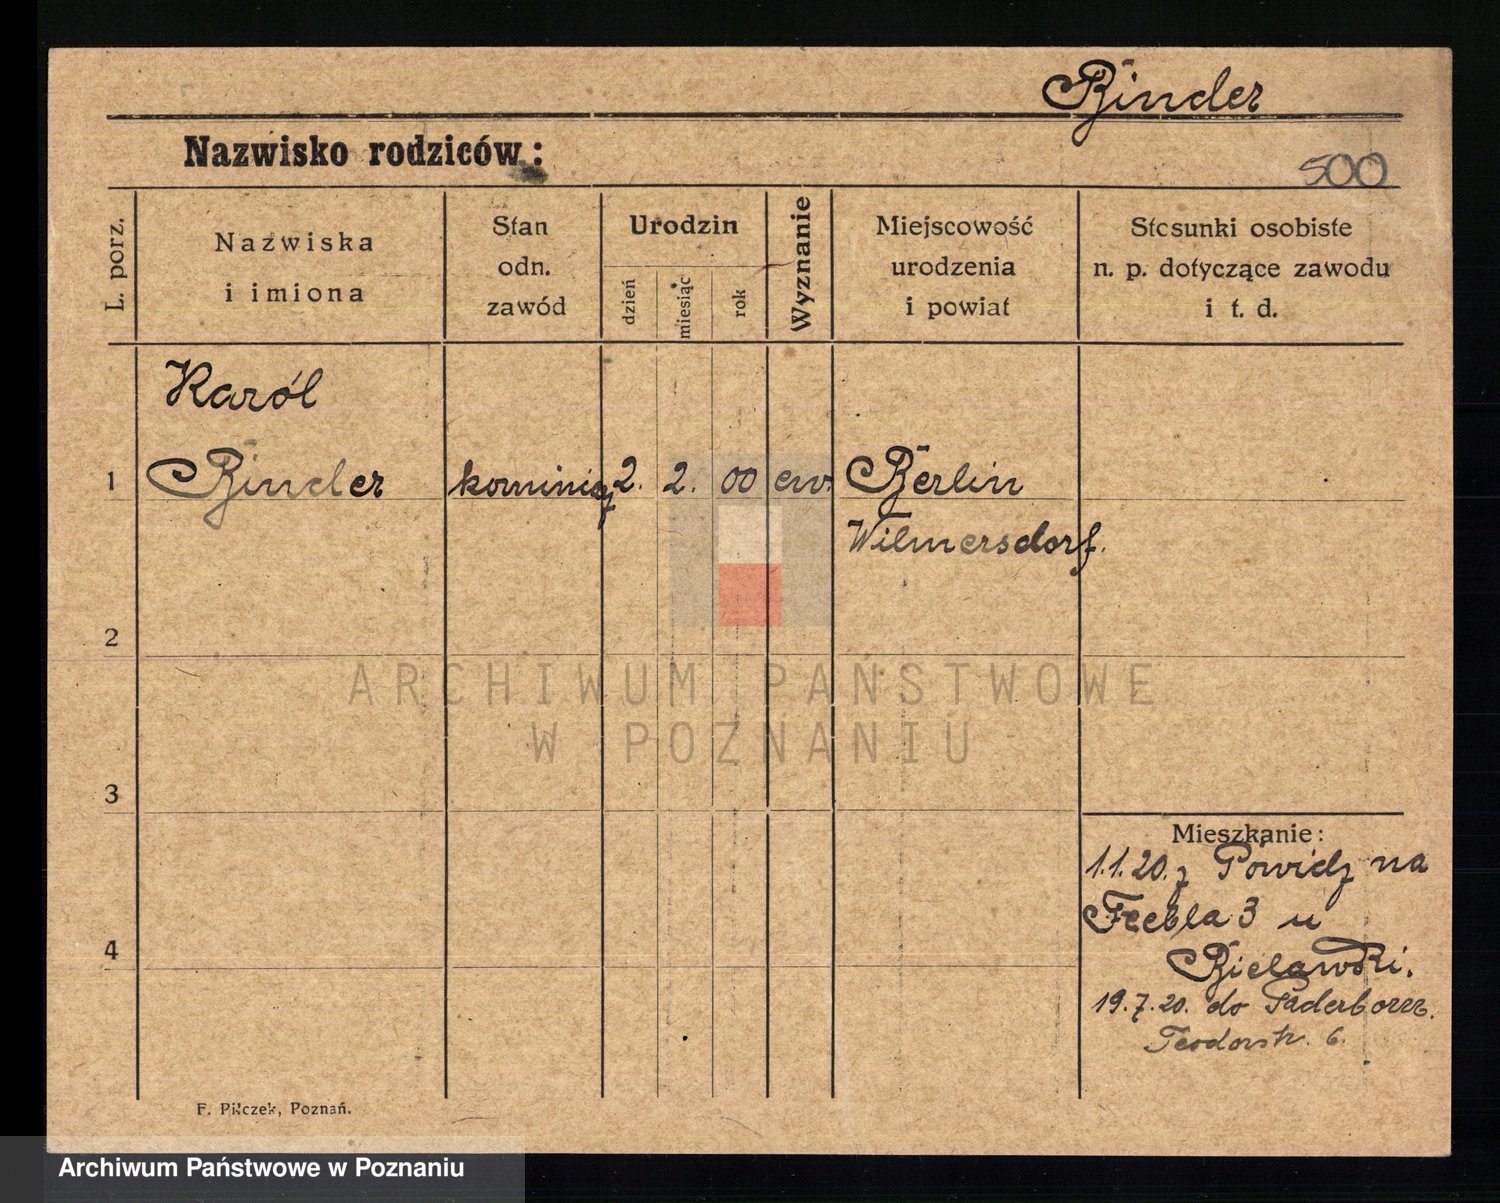 Binder
Nazwisko rodziców:
500
L. porz.
Nazwiska
i imiona
Stan
odn.
zawód
Urodzin
dzień
miesiąc
rok
Wyznanie
Miejscowość
urodzenia
i powiat
Stosunki osobiste
n. p. dotyczące zawodu
i t. d.
Karól
1 Binder kominiarz 2. 2. 00 ew. Berlin
Wilmersdorf.
2
ARCHIWUM PAŃSTWOWE
W POZNANIU
3
Mieszkanie:
1.1.20. z Powidz na
3 u
4
Bielawski.
19.7.20. do Paderborn.
Teodorstr. 6.
F. Pilczek, Poznań.
Archiwum Państwowe w Poznaniu